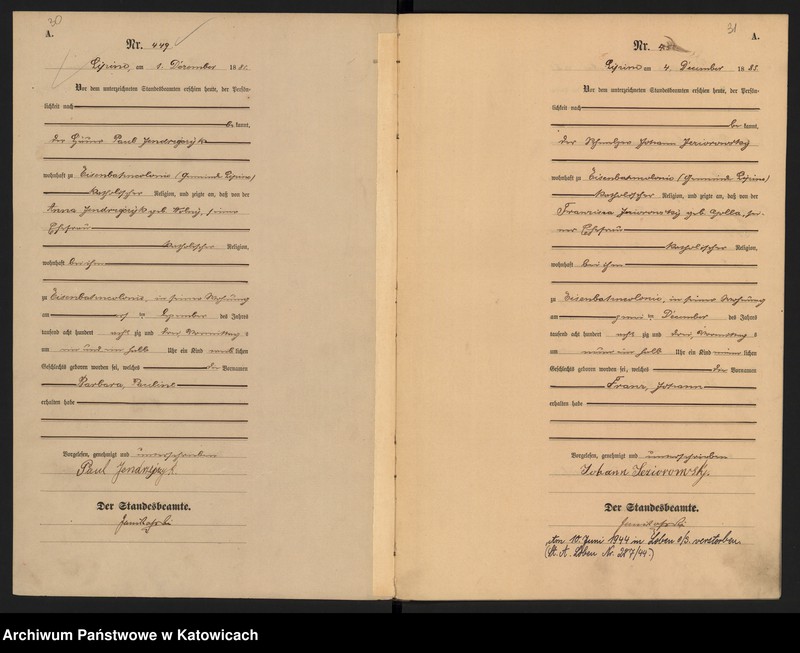 30
A.
Nr. 449
am 1. Dezember 188
Vor dem unterzeichneten Standesbeamten erschien heute, der Persön-
lichkeit nach
be kannt,
der Paul
wohnhaft zu Eisenbahncolonie (Gemeinde
katholischer Religion, und zeigte an, daß von der
Anna geb.
Ehefrau
katholischer Religion,
wohnhaft bei ihm
zu Eisenbahncolonie, in seiner Wohnung
am des Jahres
tausend acht hundert acht zig und drei, Vormittag s
um ein halb Uhr ein Kind weib lichen
Geschlechts geboren worden sei, welches die Vornamen
Barbara, Pauline
erhalten habe
Vorgelesen, genehmigt und unterschrieben
Paul
Der Standesbeamte.
31
A.
Nr.
am 4. December 1883.
Vor dem unterzeichneten Standesbeamten erschien heute, der Persön-
lichkeit nach
be kannt,
der Johann
wohnhaft zu Eisenbahncolonie (Gemeinde
katholischer Religion, und zeigte an, daß von der
geb. sei-
ner Ehefrau
katholischer Religion,
wohnhaft bei ihm
zu Eisenbahncolonie, in seiner Wohnung
am zwei ten December des Jahres
tausend acht hundert acht zig und drei, Vormittag s
um neun ein halb Uhr ein Kind männ lichen
Geschlechts geboren worden sei, welches die Vornamen
Franz, Johann
erhalten habe
Vorgelesen, genehmigt und unterschrieben
Johann
Der Standesbeamte.
Am 10. Juni 1944 in Loben O/S. verstorben
(St. A. Loben Nr. 287/44.)
Archiwum Państwowe w Katowicach